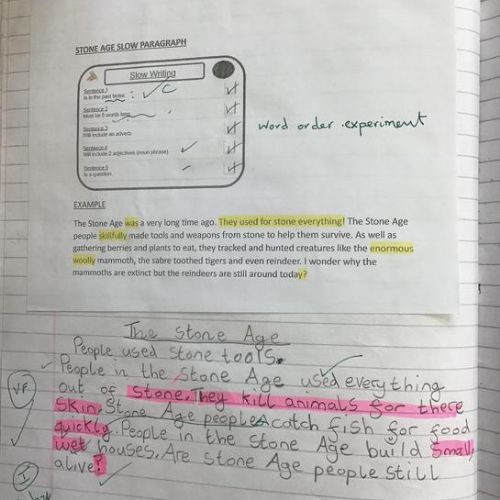 STONE AGE SLOW PARAGRAPH
Slow Writing
Sentence 1
Is in the past tense.
Sentence 2
Must be 5 words long.
Sentence 3
Will include an adverb
Sentence 4
Will include 2 adjectives (noun phrase)
Sentence 5
Is a question.
word order experiment
EXAMPLE
The Stone Age was a very long time ago. They used for stone everything! The Stone Age
people skillfully made tools and weapons from stone to help them survive. As well as
gathering berries and plants to eat, they tracked and hunted creatures like the enormous
woolly mammoth, the sabre toothed tigers and even reindeer. I wonder why the
mammoths are extinct but the reindeers are still around today?
The Stone Age
People used Stone tools.
People in the Stone Age used everything
VF
out of stone. They kill animals for there
Skin. Stone Age people catch fish for food
quickly. People in the Stone Age build Small,
wet houses. Are Stone Age people still
I
alive?